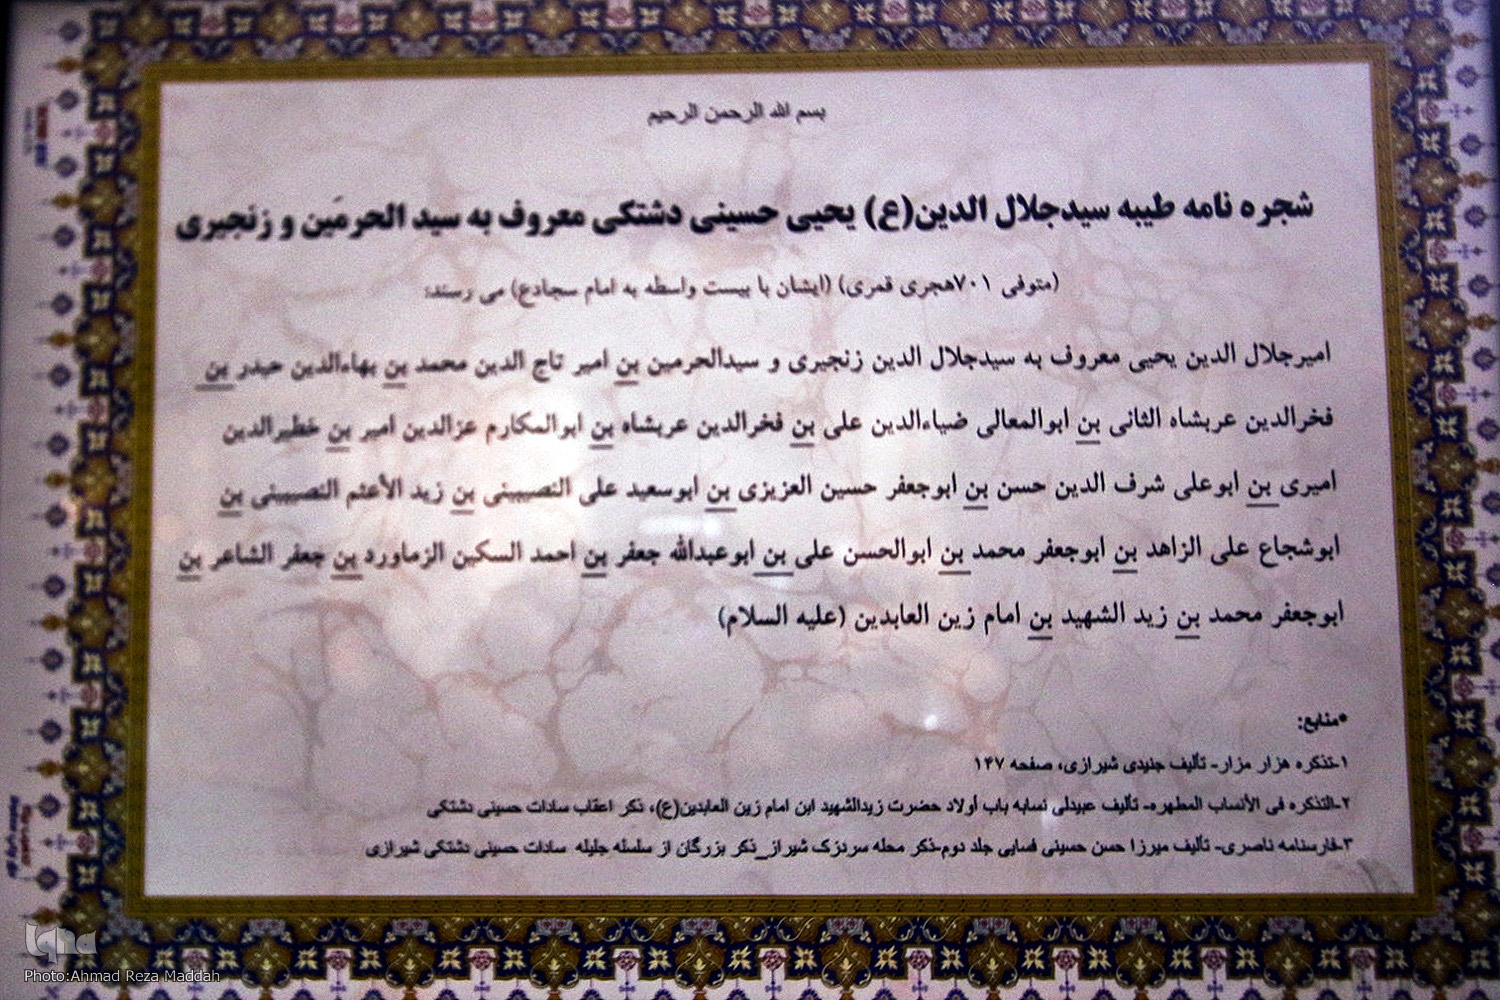 بسم الله الرحمن الرحیم
شجره نامه طیبه سیدجلال الدین(ع) یحیی حسینی دشتکی معروف به سید الحرمَین و زنجیری
(متوفی ۷۰۱هجری قمری) (ایشان با بیست واسطه به امام سجادع) می رسند:
امیرجلال الدین یحیی معروف به سیدجلال الدین زنجیری و سیدالحرمین بن امیر تاج الدین محمد بن بهاءالدین حیدر بن
فخرالدین عربشاه الثانی بن ابوالمعالی ضیاءالدین علی بن فخرالدین عربشاه بن ابوالمکارم عزالدین امیر بن خطیرالدین
امیری بن ابوعلی شرف الدین حسن بن ابوجعفر حسین العزیزی بن ابوسعید علی النصیبینی بن زید الأعثم النصیبینی بن
ابوشجاع علی الزاهد بن ابوجعفر محمد بن ابوالحسن علی بن ابوعبدالله جعفر بن احمد السکین الزماورد بن جعفر الشاعر بن
ابوجعفر محمد بن زید الشهید بن امام زین العابدین (علیه السلام)
*منابع:
۱-تذکره هزار مزار- تألیف جنیدی شیرازی، صفحه ۱۴۷
۲-التذکره فی الأنساب المطهره- تألیف عبیدلی نسابه باب أولاد حضرت زیدالشهید ابن امام زین العابدین(ع)، ذکر اعقاب سادات حسینی دشتکی
۳-فارسنامه ناصری- تألیف میرزا حسن حسینی فسایی جلد دوم-ذکر محله سردزک شیراز_ذکر بزرگان از سلسله جلیله سادات حسینی دشتکی شیرازی
iqna
Photo:Ahmad Reza Maddah